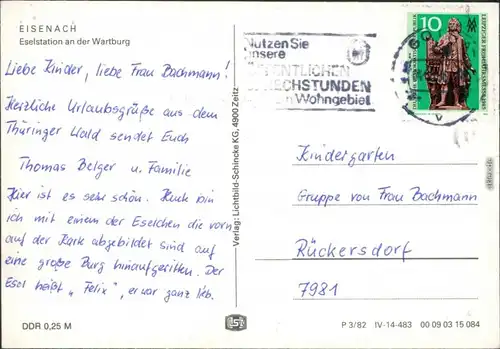 EISENACH
Eselstation an der Wartburg
Liebe Kinder, liebe Frau Bachmann!
Herzliche Urlaubsgrüße aus dem
Thüringer Wald sendet Euch
Thomas Belger u. Familie
Hier ist es sehr schön. Auch bin
ich mit einem der Eselchen die vorn
auf der Karte abgebildet sind auf
eine große Burg hinaufgeritten. Der
Esel heißt „Felix", er war ganz lieb.
DDR 0,25 M
Verlag: Lichtbild-Schincke KG, 4900 Zeitz
Nutzen Sie
unsere
ÖFFENTLICHEN
SPRECHSTUNDEN
Wohngebiet
10
Kindergarten
Gruppe von Frau Bachmann
Rückersdorf
7981
P 3/82 IV-14-483 00 09 03 15 084